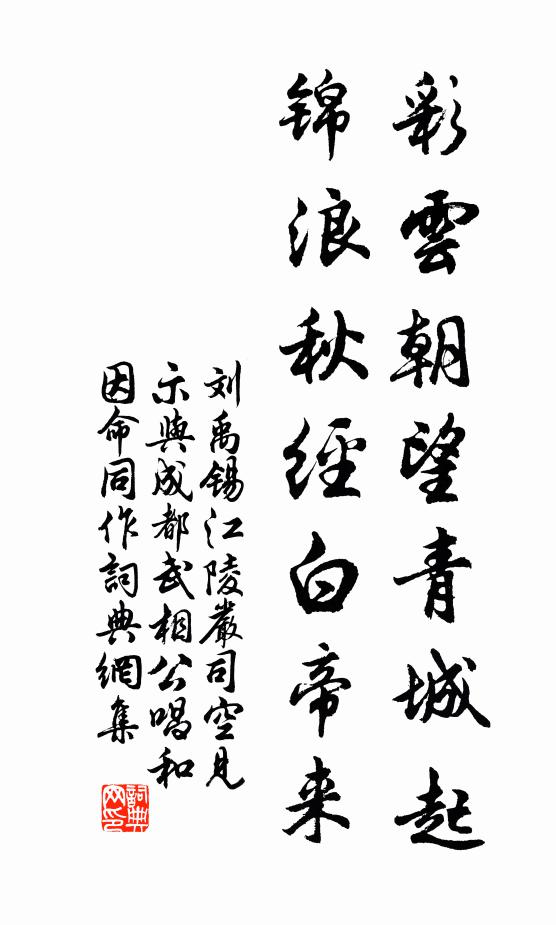 彩雲朝望青城起
锦浪秋經白帝来
刘禹锡江陵嚴司空見
示與成都武相公唱和
因命同作詞典網集
詞典网印